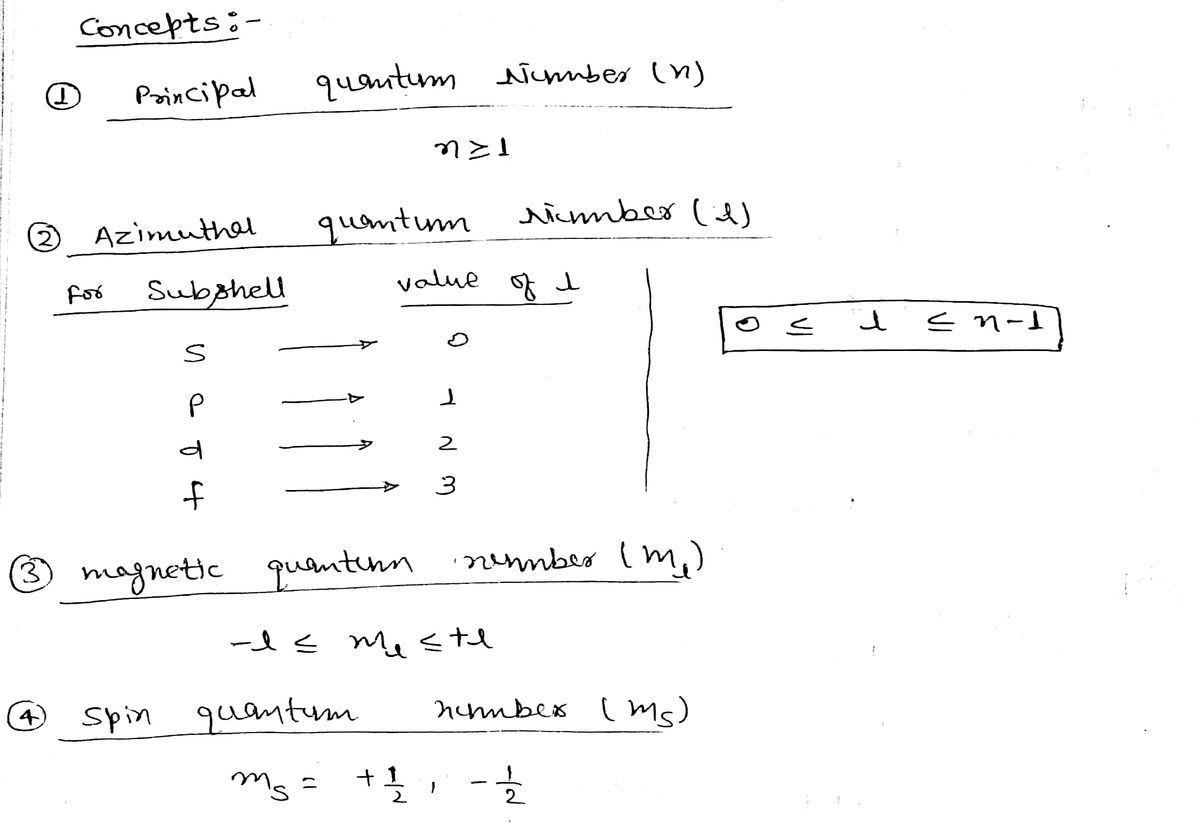 Concepts :-
① Principal quantum Number (n)
n ≥ 1
② Azimuthal quantum Number (l)
For Subshell value of l
0 ≤ l ≤ n-1
s → 0
p → 1
d → 2
f → 3
③ magnetic quantum number (mₗ)
-l ≤ mₗ ≤ +l
④ Spin quantum number (mₛ)
mₛ = +1/2, -1/2